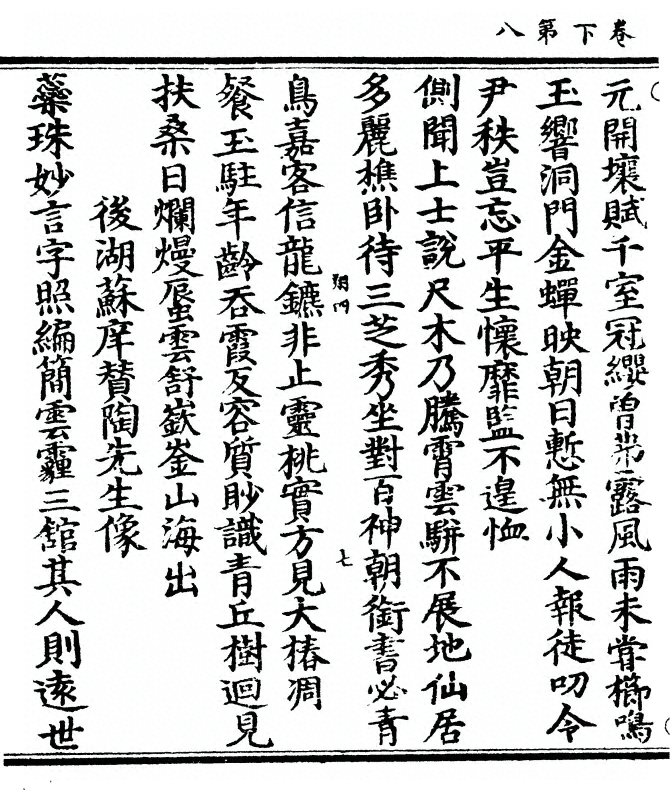 卷下第八
元開壤賦千室冠纓曽弗露風雨未甞櫛鳴
玉響洞門金蟬映朝日慙無小人報徒叨令
尹秩豈忘平生懷靡監不遑恤
側聞上士說尺木乃騰霄雲駢不展地仙居
多麗樵卧待三芝秀坐對百神朝銜書必青
鳥嘉客信龍鑣非止靈桃實方見大椿凋
翔四
七
餐玉駐年齡吞霞反容質眇識青丘樹迴見
扶桑日爛熳蜃雲舒嶔崟山海出
後湖蘇庠賛陶先生像
蘂珠妙言字照編簡雲霾三舘其人則逺世